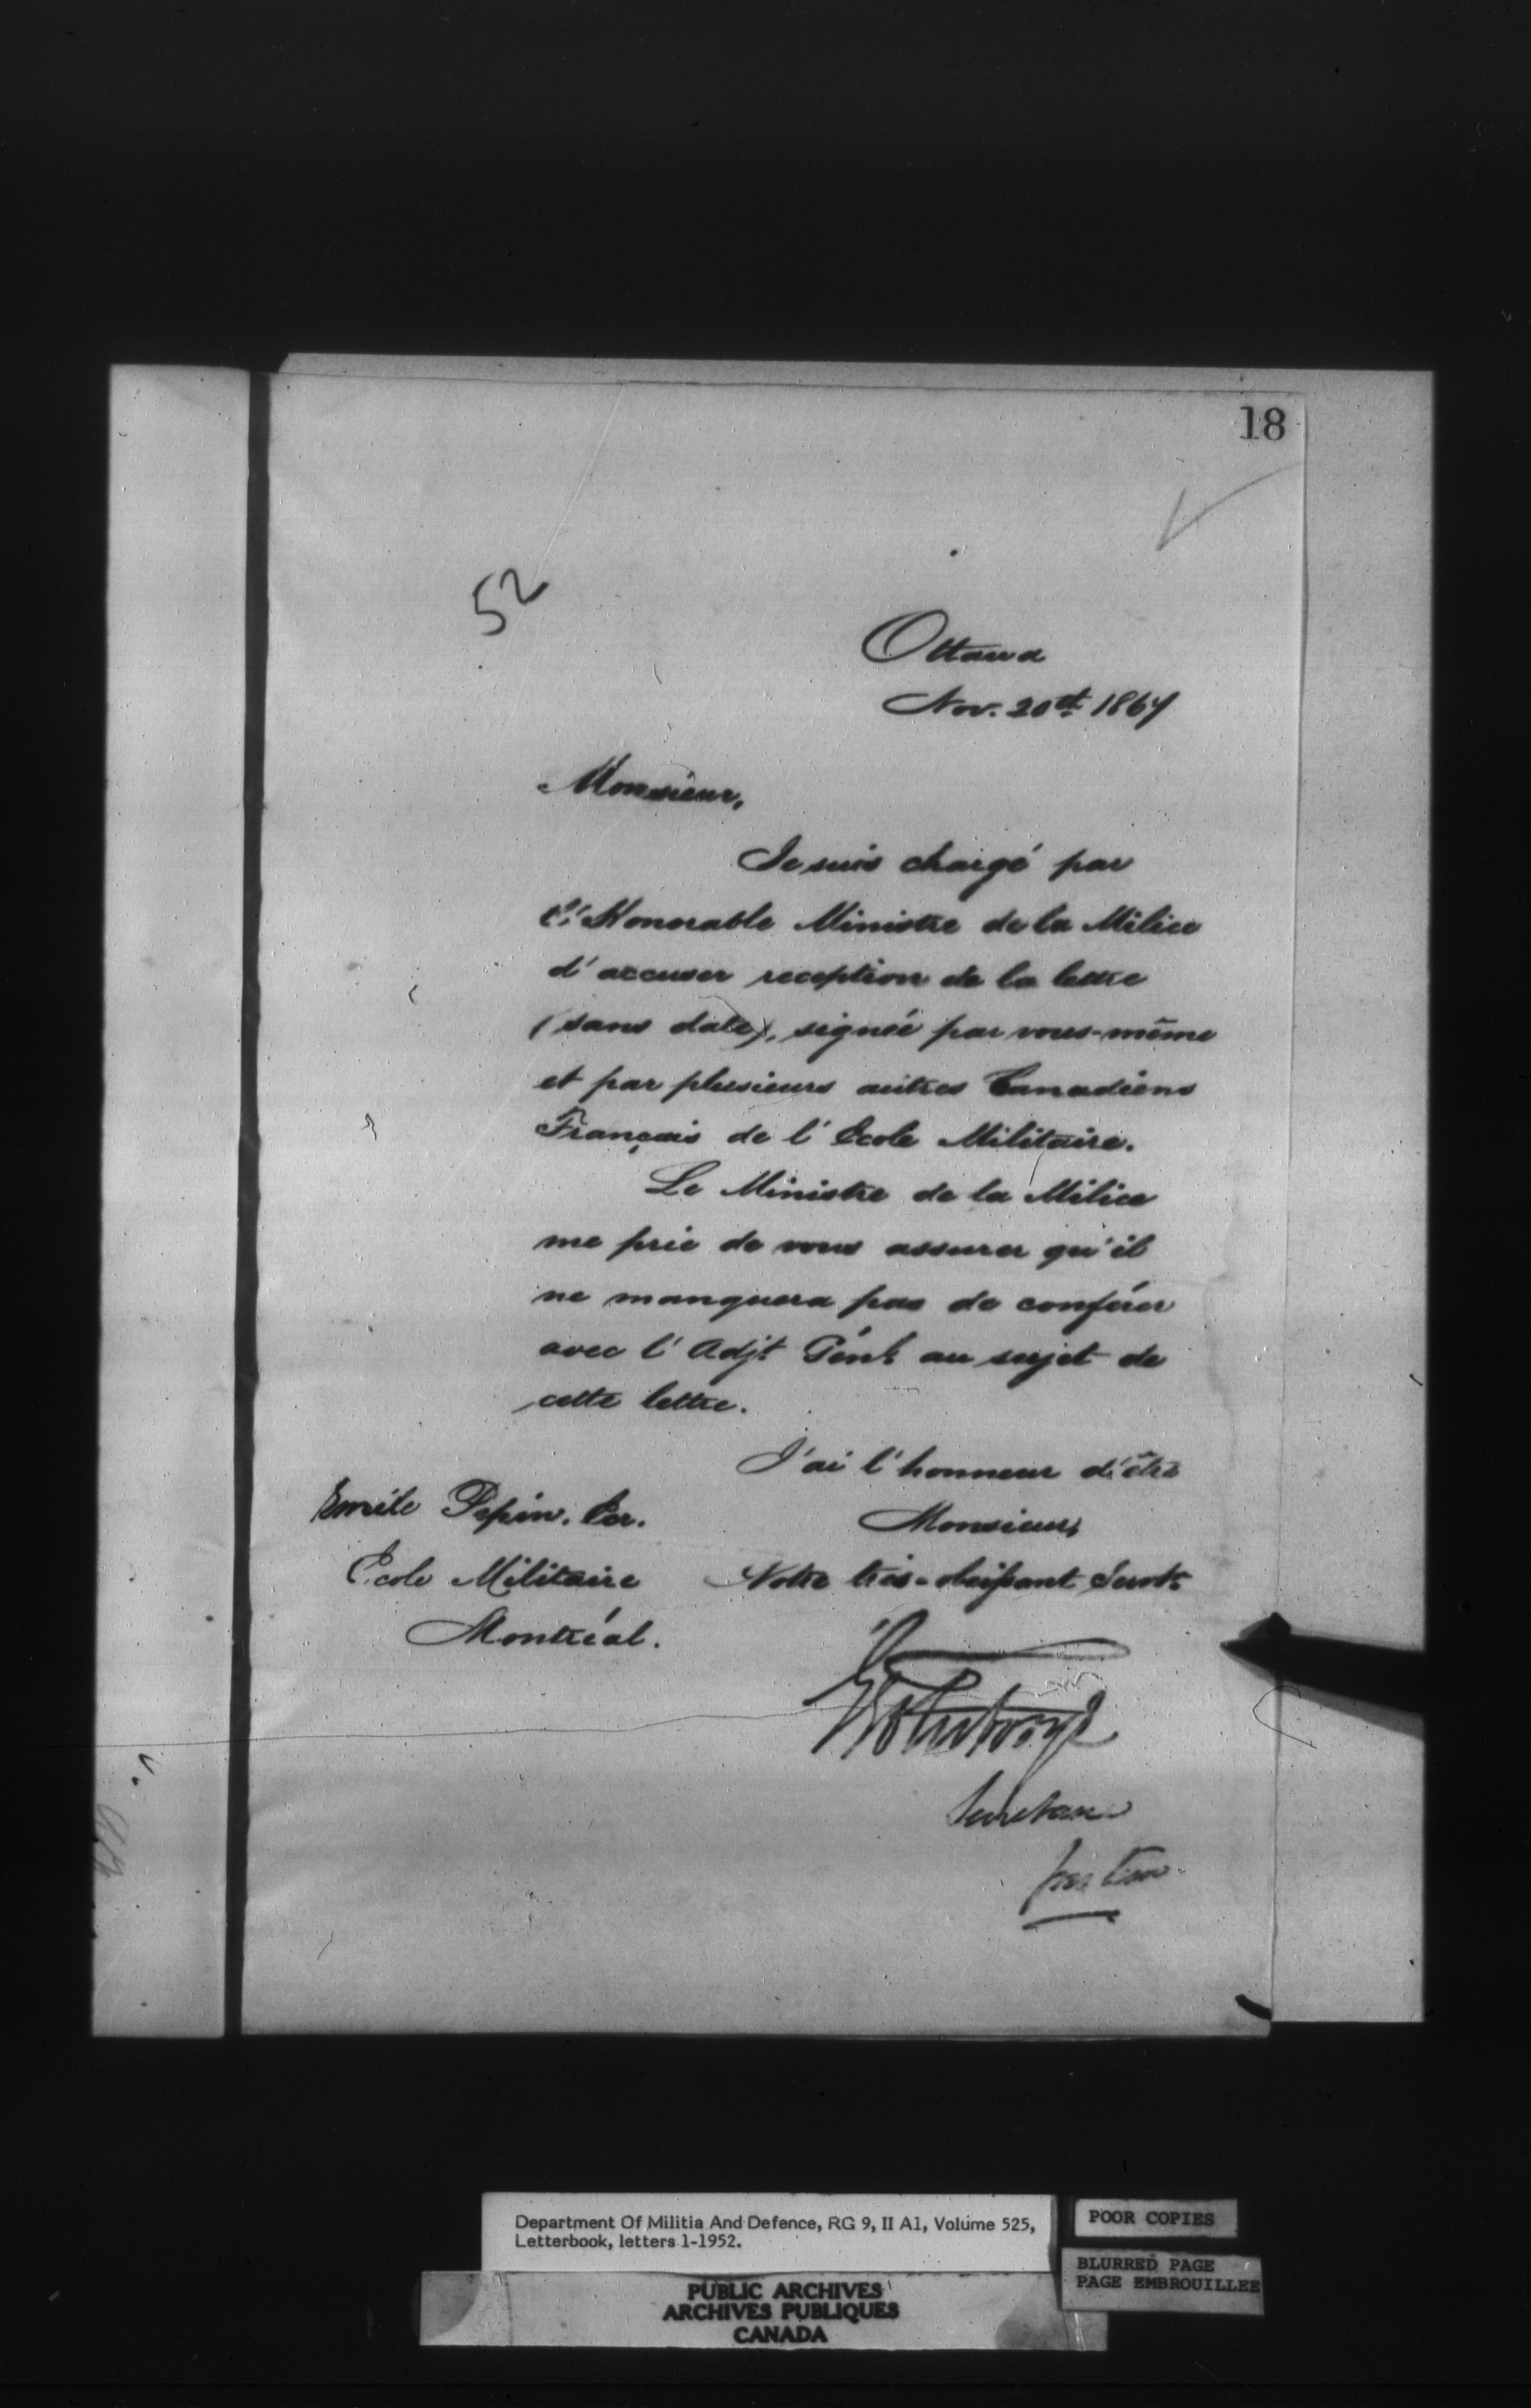 18
52
Ottawa
Nov. 20th 1867
Monsieur,
Je suis chargé par
l'Honorable Ministre de la Milice
d'accuser reception de la lettre
(sans date), signée par vous-même
et par plusieurs autres Canadiens
Français de l'Ecole Militaire.
Le Ministre de la Milice
me prie de vous assurer qu'il
ne manquera pas de conférer
avec l'Adjt Génl au sujet de
cette lettre.
J'ai l'honneur d'être
Monsieur,
Votre très-obéissant Servt
Emile Pepin. Ecr.
Ecole Militaire
Montréal.
Secretaire
Department Of Militia And Defence, RG 9, II A1, Volume 525,
Letterbook, letters 1-1952.
POOR COPIES
BLURRED PAGE
PAGE EMBROUILLEE
PUBLIC ARCHIVES
ARCHIVES PUBLIQUES
CANADA